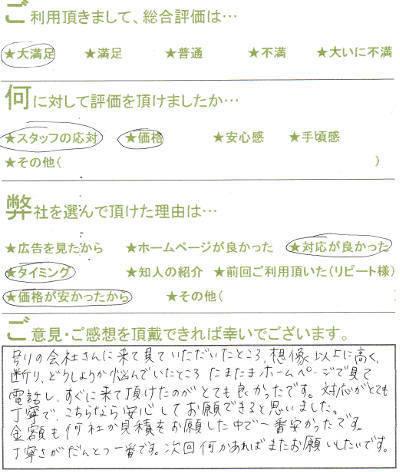 ご利用頂きまして、総合評価は…
★大満足 ★満足 ★普通 ★不満 ★大いに不満
何に対して評価を頂けましたか…
★スタッフの応対 ★価格 ★安心感 ★手頃感
★その他( )
弊社を選んで頂けた理由は…
★広告を見たから ★ホームページが良かった ★対応が良かった
★タイミング ★知人の紹介 ★前回ご利用頂いた(リピート様)
★価格が安かったから ★その他(
ご意見・ご感想を頂戴できれば幸いでございます。
の会社さんに来て見ていただいたところ、想像以上に高く、
断り、どうしようか悩んでいたところ たまたまホームページで見て
電話し、すぐに来て頂けたのがとても良かったです。対応がとても
丁寧で、こちらなら安心してお願できると思いました。
金額も何社か見積をお願した中で一番安かったです。
丁寧さがだんとつ一番です。次回何かあればまたお願いしたいです。